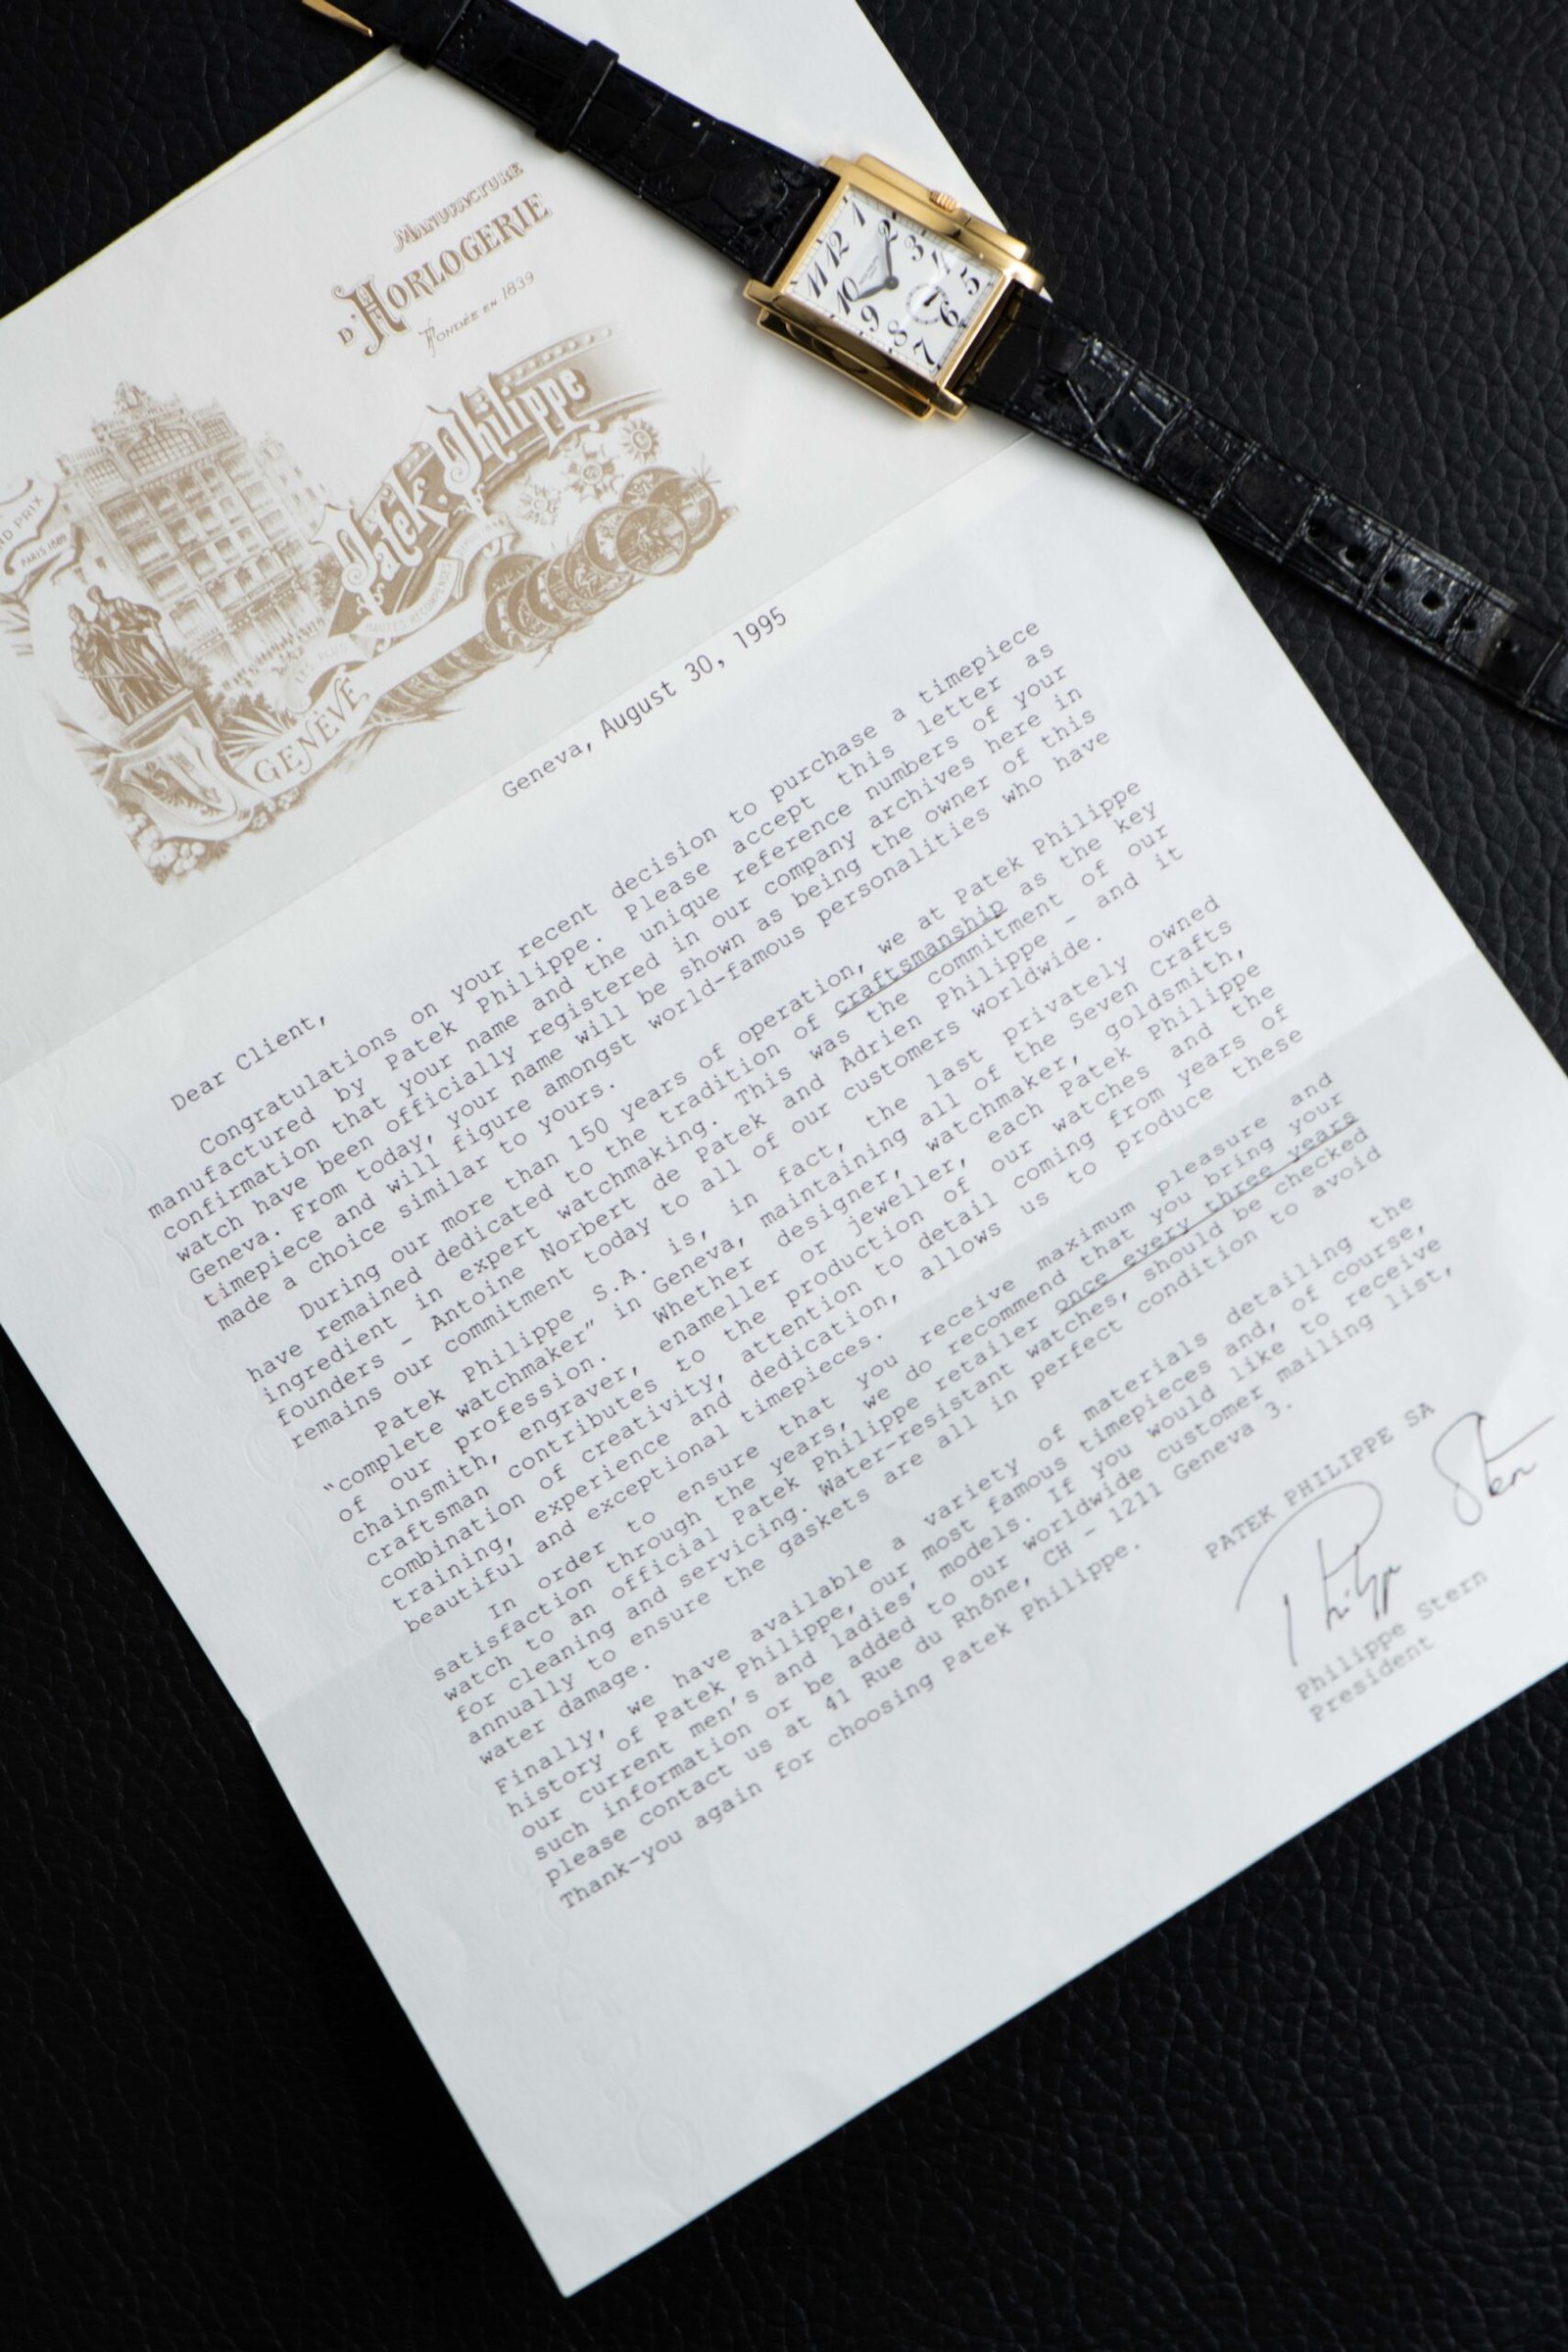 MANUFACTURE
D'HORLOGERIE
FONDÉE EN 1839
Patek Philippe
GRAND PRIX
PARIS 1889
HAUTES RECOMPENSES
GENÈVE
1 2 3 4 5 6 7 8 9 10 11 12
Geneva, August 30, 1995
Dear Client,
Congratulations on your recent decision to purchase a timepiece
manufactured by Patek Philippe. Please accept this letter as
confirmation that your name and the unique reference numbers of your
watch have been officially registered in our company archives here in
Geneva. From today, your name will be shown as being the owner of this
timepiece and will figure amongst world-famous personalities who have
made a choice similar to yours.
During our more than 150 years of operation, we at Patek Philippe
have remained dedicated to the tradition of craftsmanship as the key
ingredient in expert watchmaking. This was the commitment of our
founders - Antoine Norbert de Patek and Adrien Philippe - and it
remains our commitment today to all of our customers worldwide.
Patek Philippe S.A. is, in fact, the last privately owned
"complete watchmaker" in Geneva, maintaining all of the Seven Crafts
of our profession. Whether designer, watchmaker, goldsmith,
chainsmith, engraver, enameller or jeweller, each Patek Philippe
craftsman contributes to the production of our watches and the
combination of creativity, attention to detail coming from years of
training, experience and dedication, allows us to produce these
beautiful and exceptional timepieces.
In order to ensure that you receive maximum pleasure and
satisfaction through the years, we do recommend that you bring your
watch to an official Patek Philippe retailer once every three years
for cleaning and servicing. Water-resistant watches, should be checked
annually to ensure the gaskets are all in perfect condition to avoid
water damage.
Finally, we have available a variety of materials detailing the
history of Patek Philippe, our most famous timepieces and, of course,
our current men's and ladies' models. If you would like to receive
such information or be added to our worldwide customer mailing list,
please contact us at 41 Rue du Rhône, CH - 1211 Geneva 3.
Thank-you again for choosing Patek Philippe.
PATEK PHILIPPE SA
Philippe Stern
Philippe Stern
President